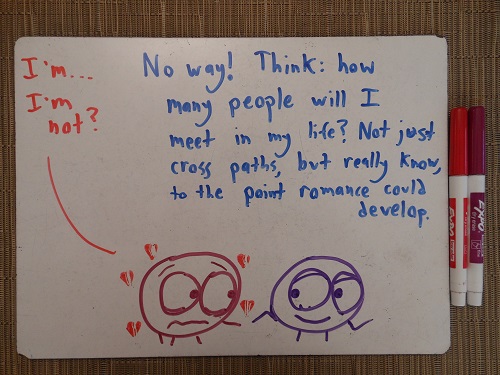 I'm...
I'm
not?
No way! Think: how
many people will I
meet in my life? Not just
cross paths, but really know,
to the point romance could
develop.
EXPO